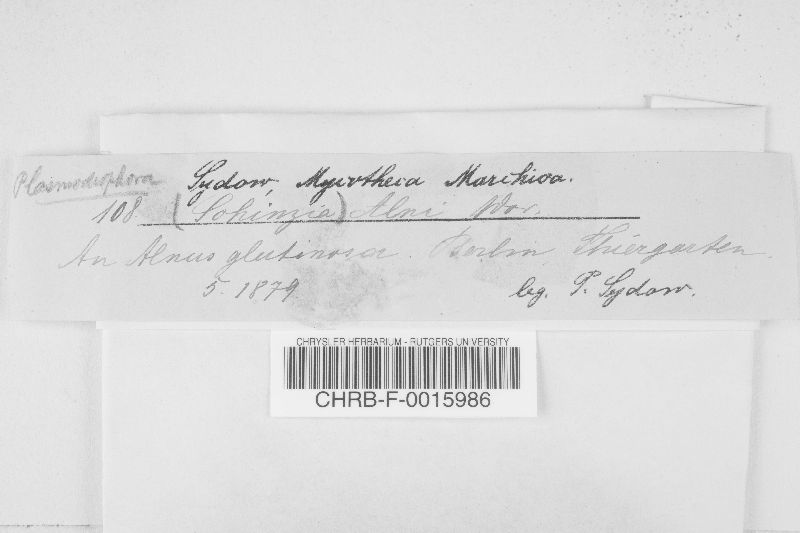 Plasmodiophora Sydow, Mycotheca Marchica.
108. (Schinzia) Alni Wor.
An Alnus glutinosa. Berlin, Thiergarten.
5. 1879 leg. P. Sydow.
CHRYSLER HERBARIUM - RUTGERS UNIVERSITY
CHRB-F-0015986